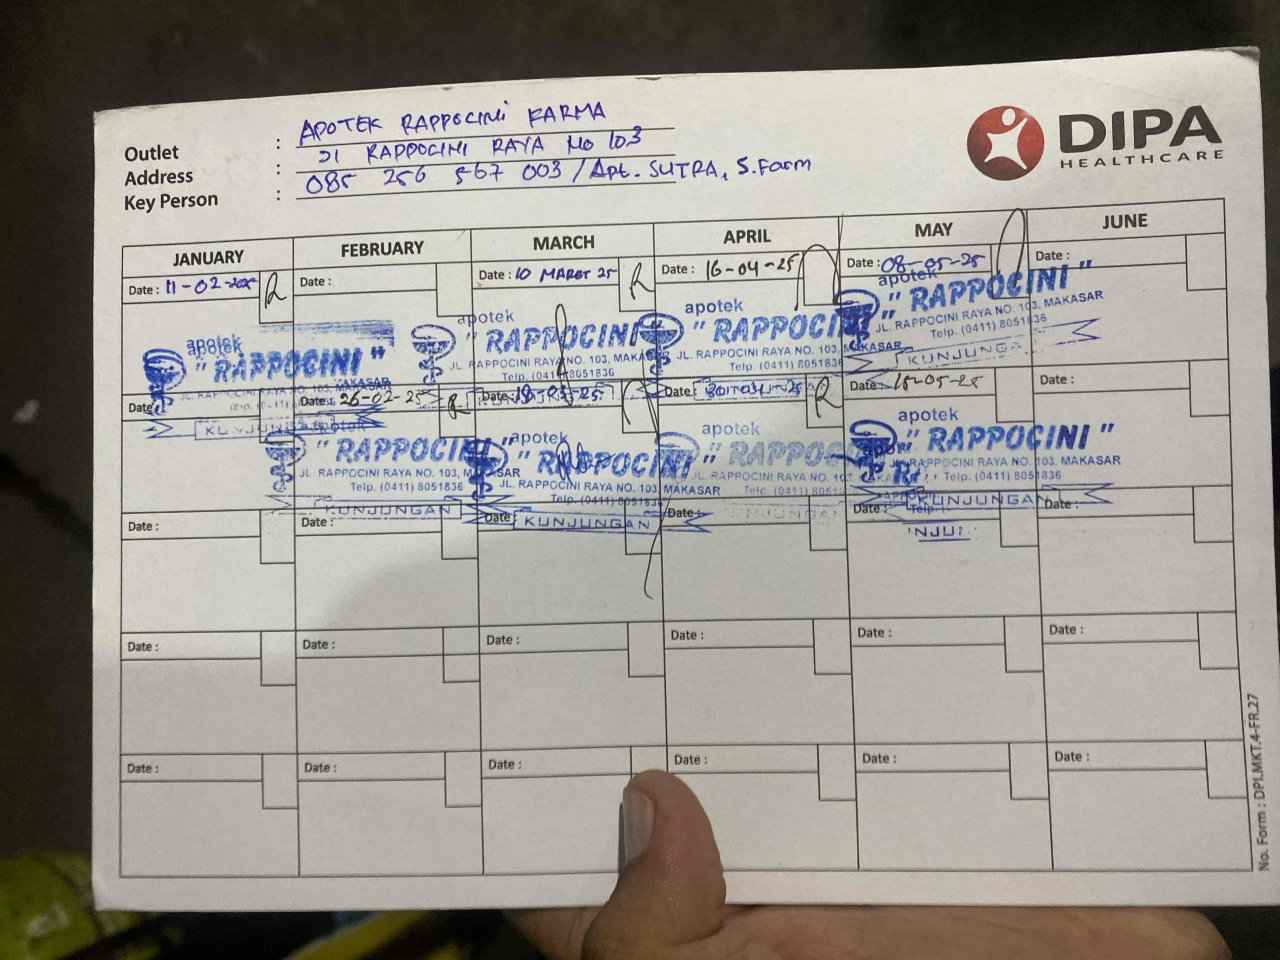 Outlet : APOTEK RAPPOCINI FARMA
Address : Jl RAPPOCINI RAYA No 103
Key Person : 085 256 567 003 / Apt. SUTRA, S.Farm
DIPA
HEALTHCARE
JANUARY FEBRUARY MARCH APRIL MAY JUNE
Date : 11-02-2025 R Date : Date : 10 MARET 25 R Date : 16-04-25 Date : 08-05-25 Date :
apotek
" RAPPOCINI "
JL. RAPPOCINI RAYA NO. 103, MAKASAR
KUNJUNGAN
apotek
" RAPPOCINI
JL. RAPPOCINI RAYA NO. 103, MAKASAR
Telp. (0411) 8051836
apotek
" RAPPOCINI
JL. RAPPOCINI RAYA NO. 103, MAKASAR
apotek
" RAPPOCINI "
JL. RAPPOCINI RAYA NO. 103, MAKASAR
Telp. (0411) 8051836
KUNJUNGAN
Date Date : 26-02-25 R Date : Date : R Date : Date :
apotek
" RAPPOCINI "
JL. RAPPOCINI RAYA NO. 103, MAKASAR
Telp. (0411) 8051836
KUNJUNGAN
apotek
" RAPPOCINI "
JL. RAPPOCINI RAYA NO. 103, MAKASAR
Telp. (0411) 8051836
KUNJUNGAN
apotek
" RAPPOCINI
JL. RAPPOCINI RAYA NO. 107
KUNJUNGAN
apotek
" RAPPOCINI "
RAPPOCINI RAYA NO. 103, MAKASAR
KUNJUNGAN
Date : Date : Date : Date : Date : Date :
Date : Date : Date : Date : Date : Date :
Date : Date : Date : Date : Date :
No. Form : DPI.MKT.4-FR.27